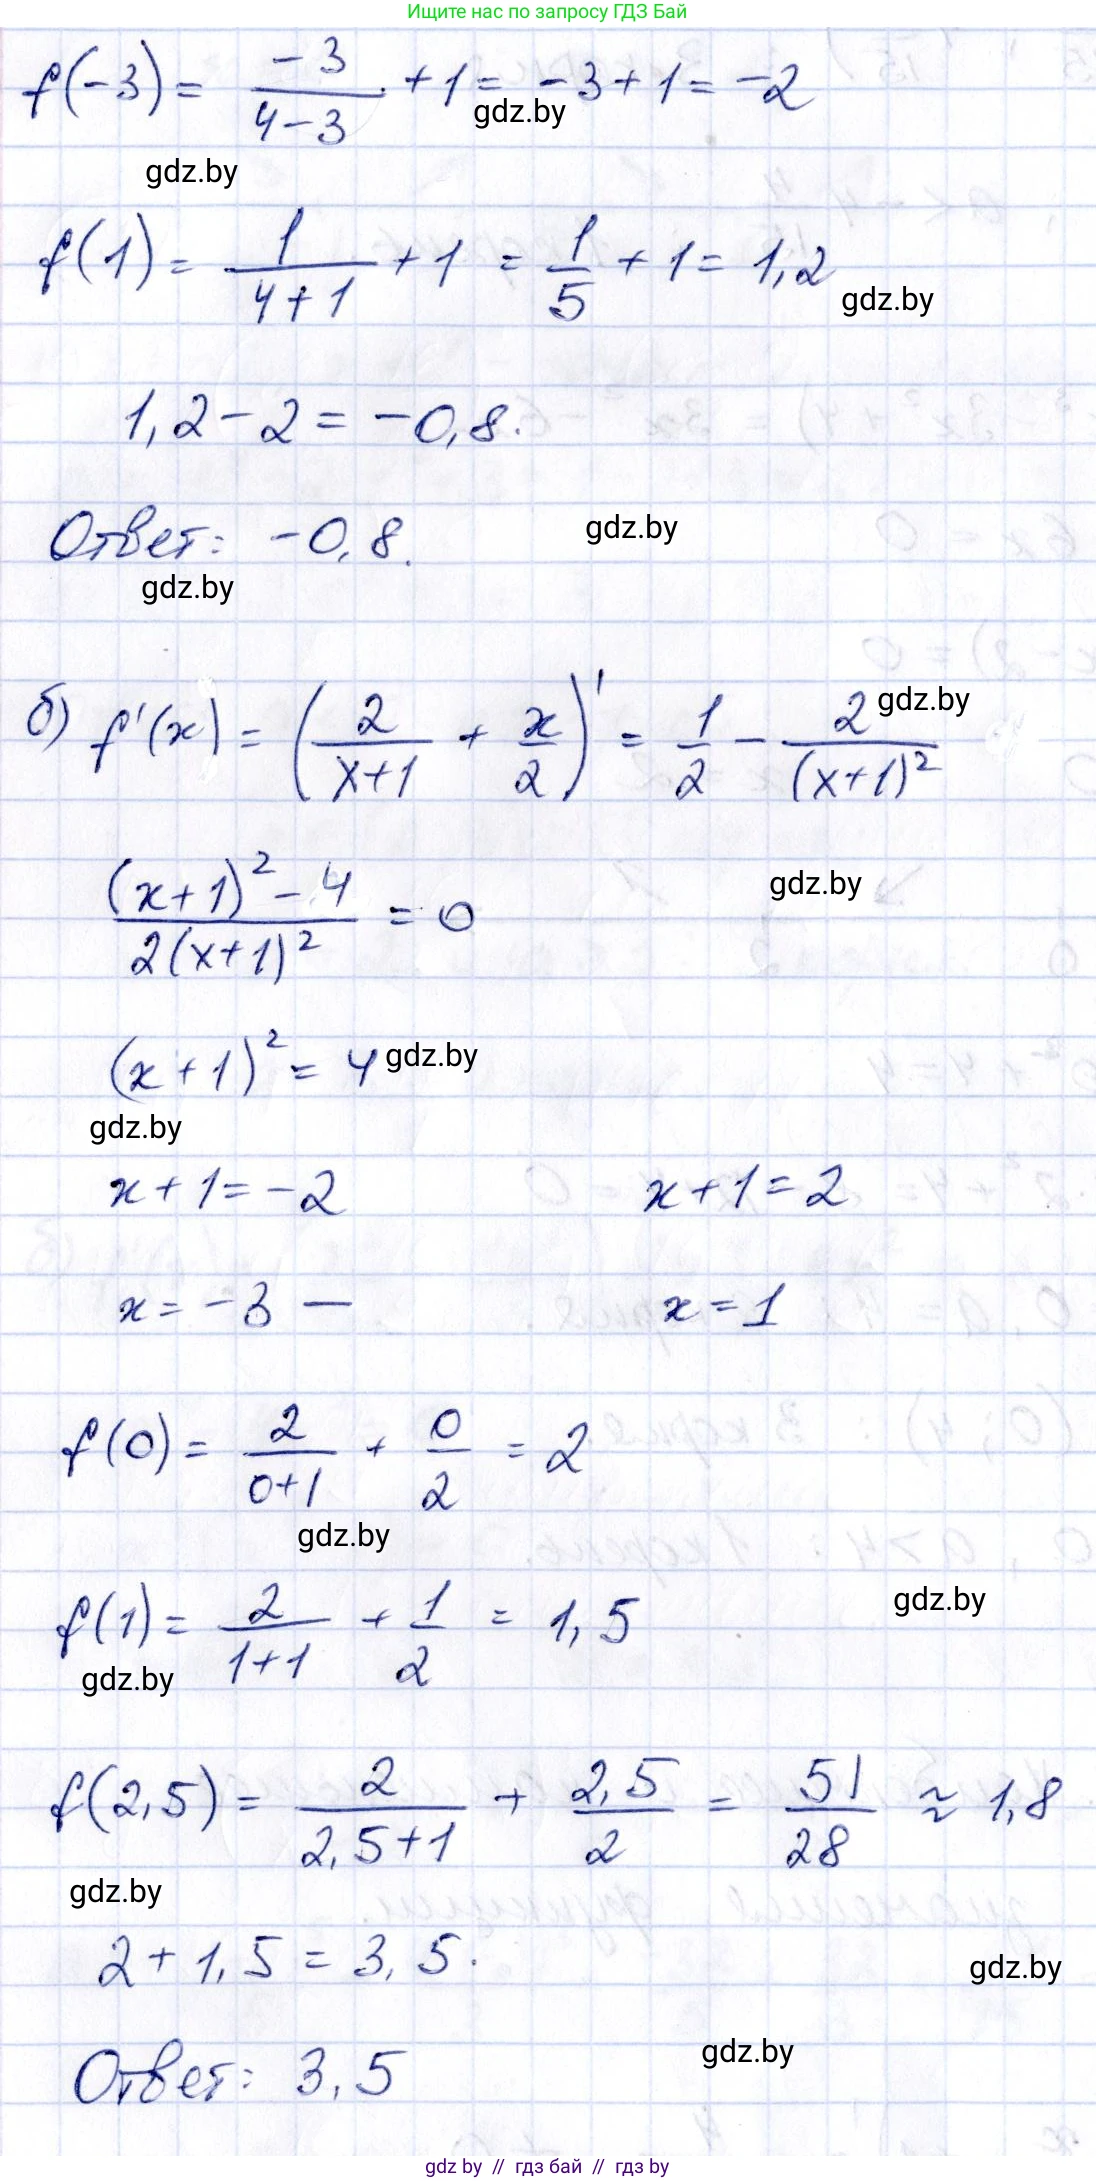 Ищите нас по запросу ГДЗ Бай
f(-3) = -3/(4-3) + 1 = -3 + 1 = -2
gdz.by
gdz.by
f(1) = 1/(4+1) + 1 = 1/5 + 1 = 1,2
gdz.by
1,2 - 2 = -0,8.
Ответ: -0,8.
gdz.by
gdz.by
б) f'(x) = (2/(x+1) + x/2)' = 1/2 - 2/(x+1)²
gdz.by
((x+1)² - 4)/(2(x+1)²) = 0
gdz.by
(x+1)² = 4
gdz.by
gdz.by
x+1 = -2 x+1 = 2
x = -3 — x = 1
f(0) = 2/(0+1) + 0/2 = 2
gdz.by
f(1) = 2/(1+1) + 1/2 = 1,5
gdz.by
gdz.by
f(2,5) = 2/(2,5+1) + 2,5/2 = 51/28 ≈ 1,8
gdz.by
2 + 1,5 = 3,5.
gdz.by
Ответ: 3,5
gdz.by
gdz by // гдз бай // гдз by